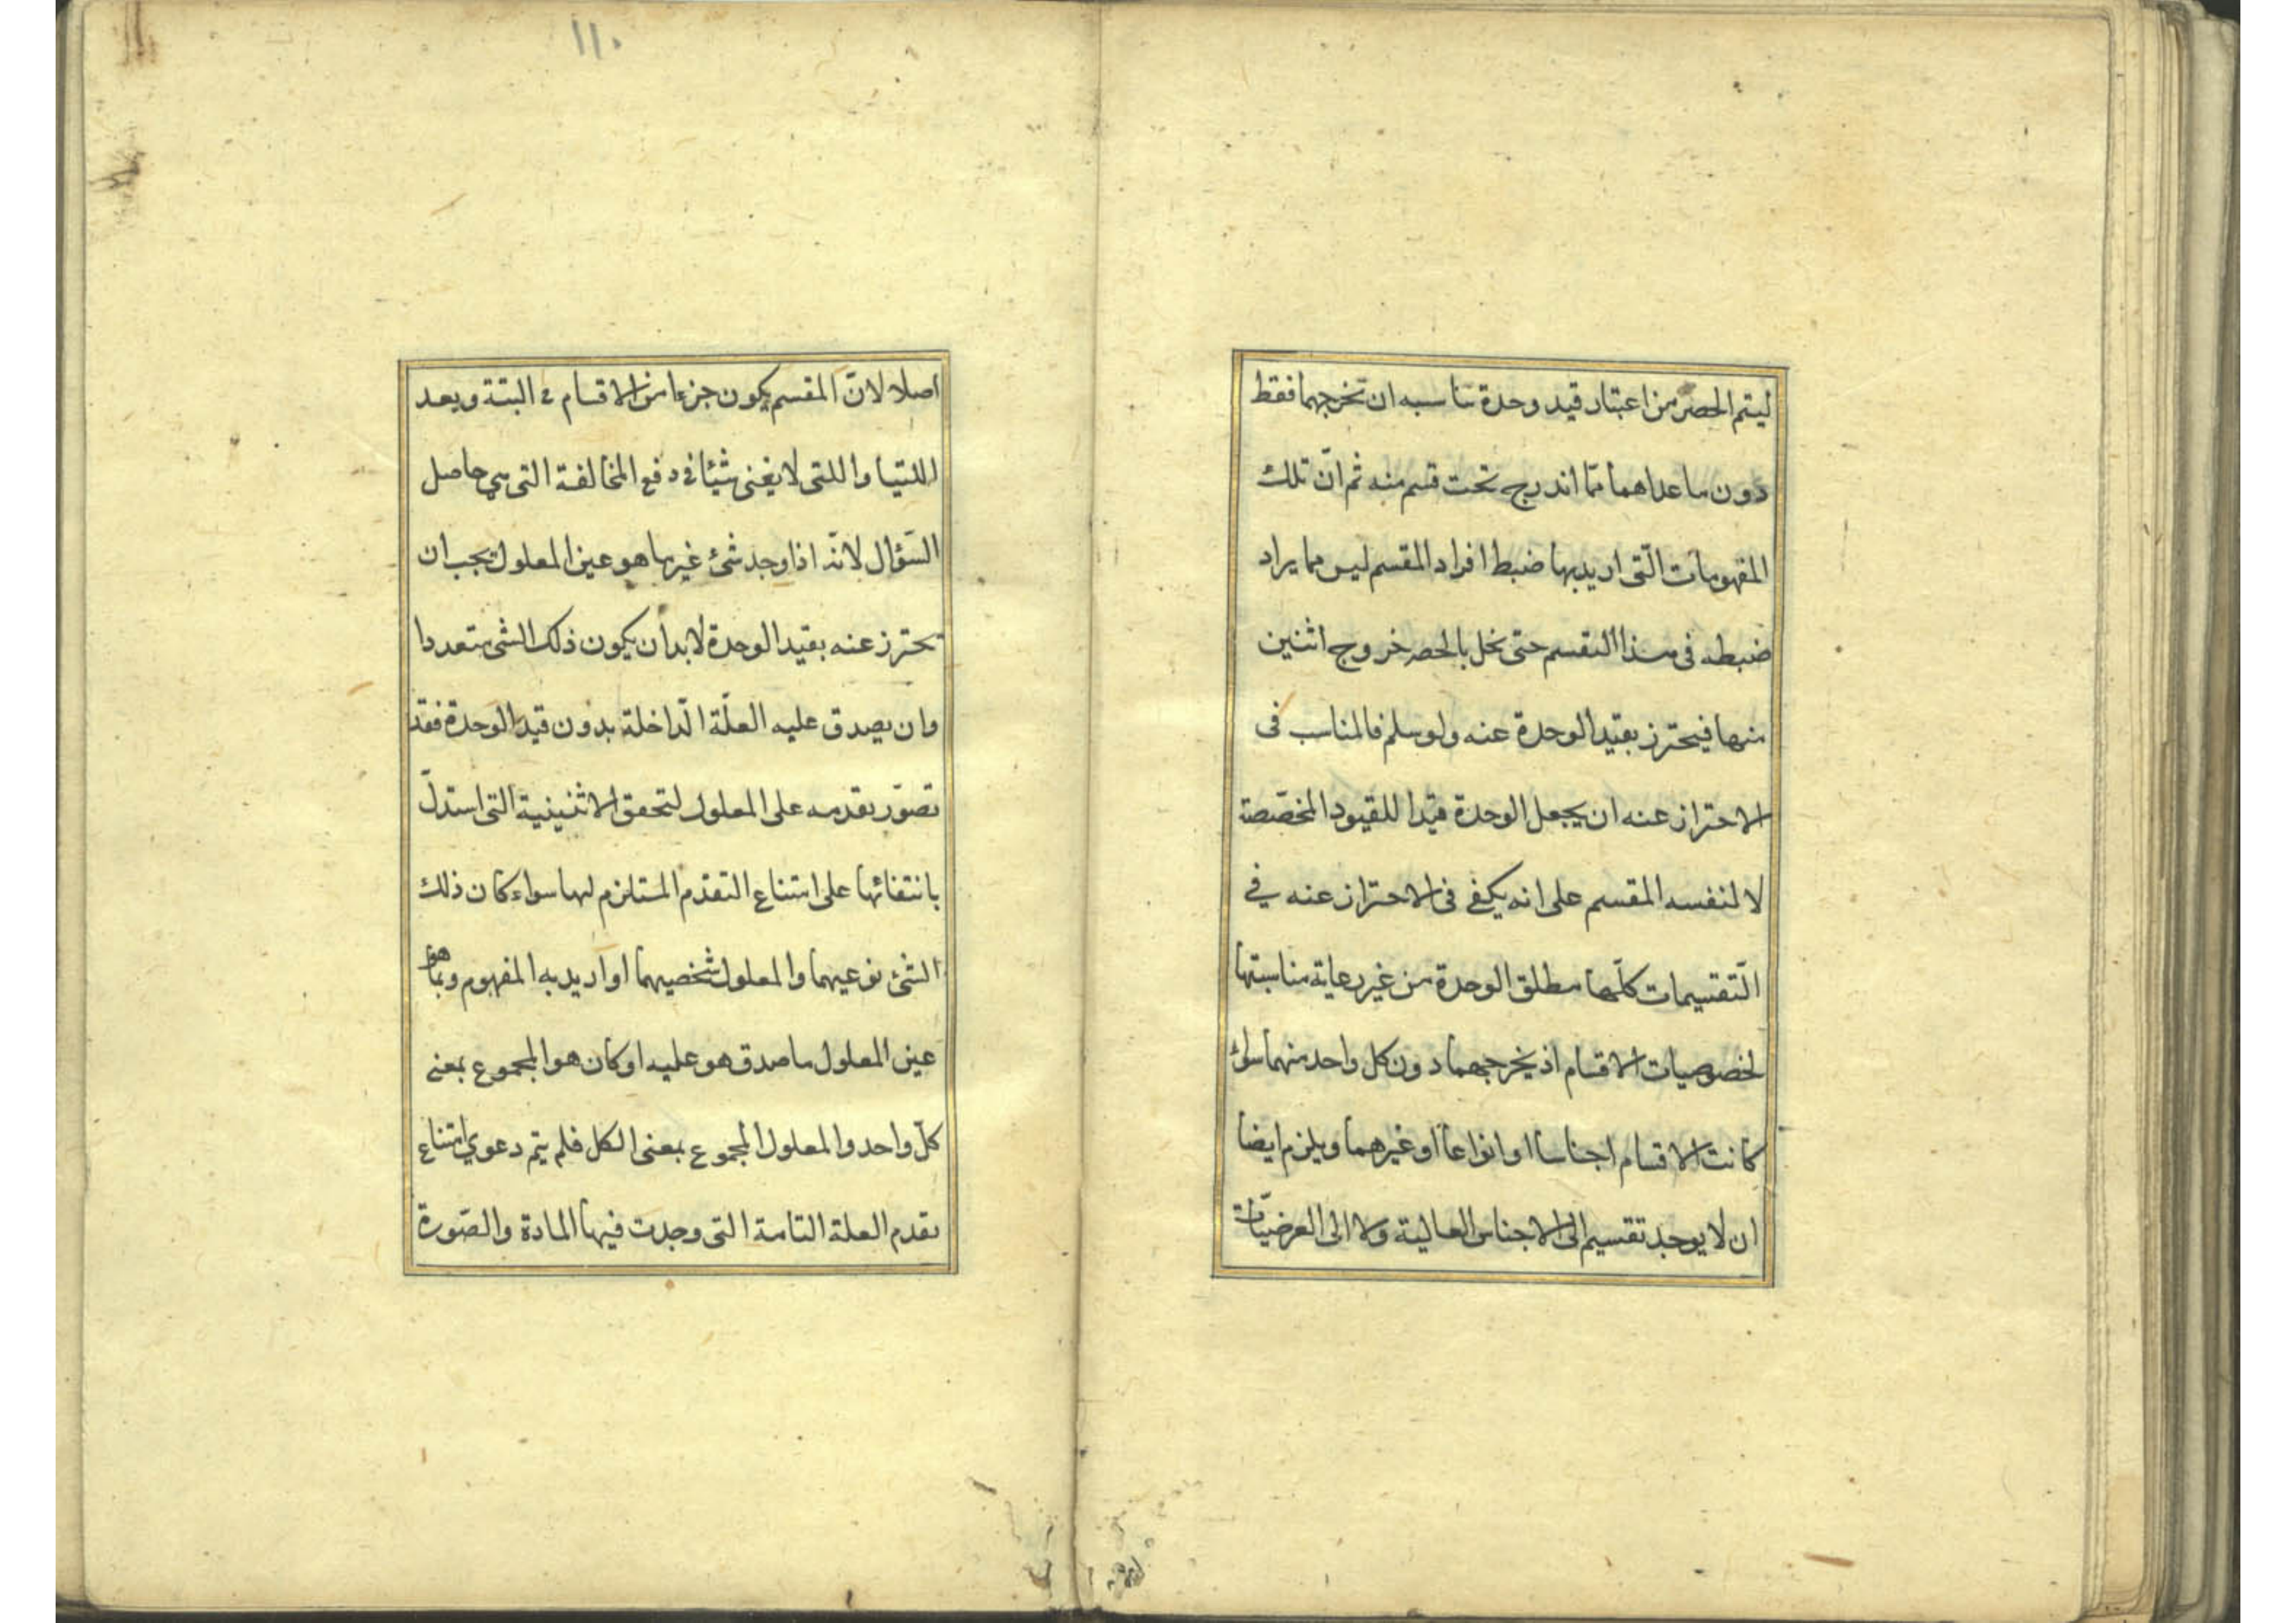 ليتم الحصر من اعتبار قيد وحدة تناسبه ان تخرجهما فقط
دون ما عداهما مما اندرج تحت قسم منه ثم انّ تلك
المفهومات الّتى اريد بها ضبط افراد المقسم ليس مما يراد
ضبطه فى هذا التقسم حتى يخل بالحصر خروج اثنين
منها فيحترز بقيد الوحدة عنه ولو سلم فالمناسب فى
الاحتراز عنه ان يجعل الوحدة قيدا للقيود المخصّصة
لا لنفسه المقسم على انه يكفى فى الاحتراز عنه في
الّتقسيمات كلّها مطلق الوحدة من غير رعاية مناسبتها
لخصوصيات الاقسام اذ يخرجهما دون كل واحد منهما سوائ
كانت الاقسام اجناسا او انواعا او غيرهما ويلزم ايضا
ان لا يوجد تقسيم الى الاجناس العالية ولا الى العرضيّات
١١٠
اصلا لانّ المقسم يكون جزءا من الاقسام فى البتة وبعد
اللتيا واللتى لا يغنى شيئا فى دفع المخالفة التى هي حاصل
السّؤال لانّه اذا وجد شئ غيرها هو عين المعلول يجب ان
تحترز عنه بقيد الوحدة لابد أن يكون ذلك الشى متعددا
وان يصدق عليه العلّة الّداخلة بدون قيد الوحدة فقد
تصوّر تقدمه على المعلول لتحقق الاثنينية التى استدلّ
بانتفائها على امتناع التقدّم المستلزم لها سواء كان ذلك
الشئ نوعيهما والمعلول شخصيهما او اريد به المفهوم وبما هو
عين المعلول ما صدق هو عليه او كان هو المجموع بمعنى
كلّ واحد والمعلول المجموع بمعنى الكل فلم يتم دعوي امتناع
تقدم العلة التامة التى وجدت فيها المادة والصّورة